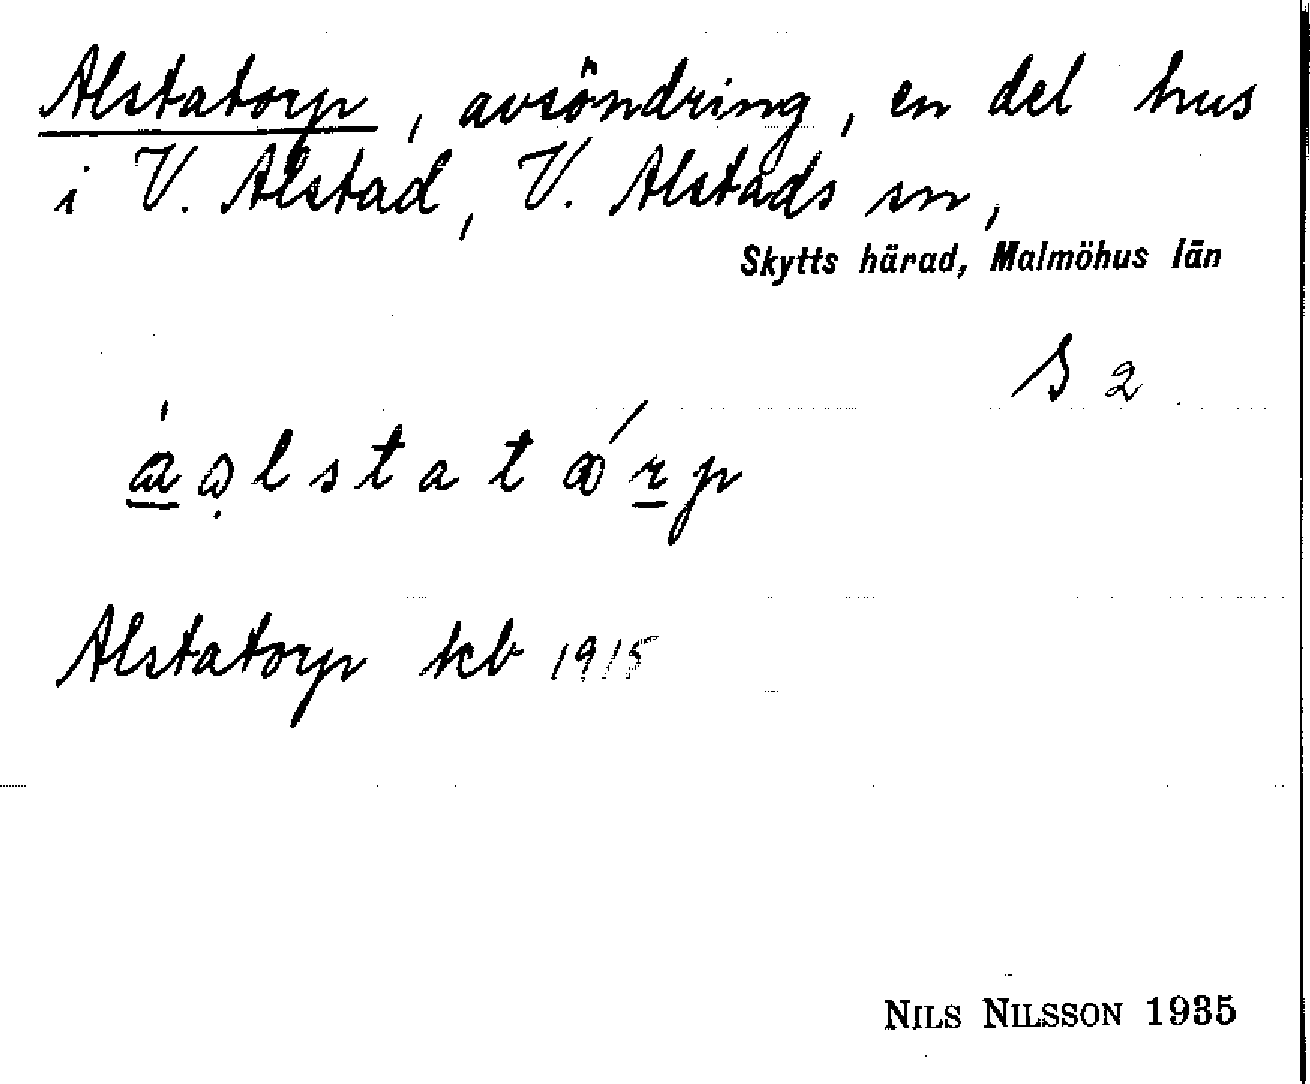 Alstatorp, avsöndring, en del hus
i V. Alstad, V. Alstads sn,
Skytts härad, Malmöhus län
S 2
Alstatorp kb 1915
NILS NILSSON 1935